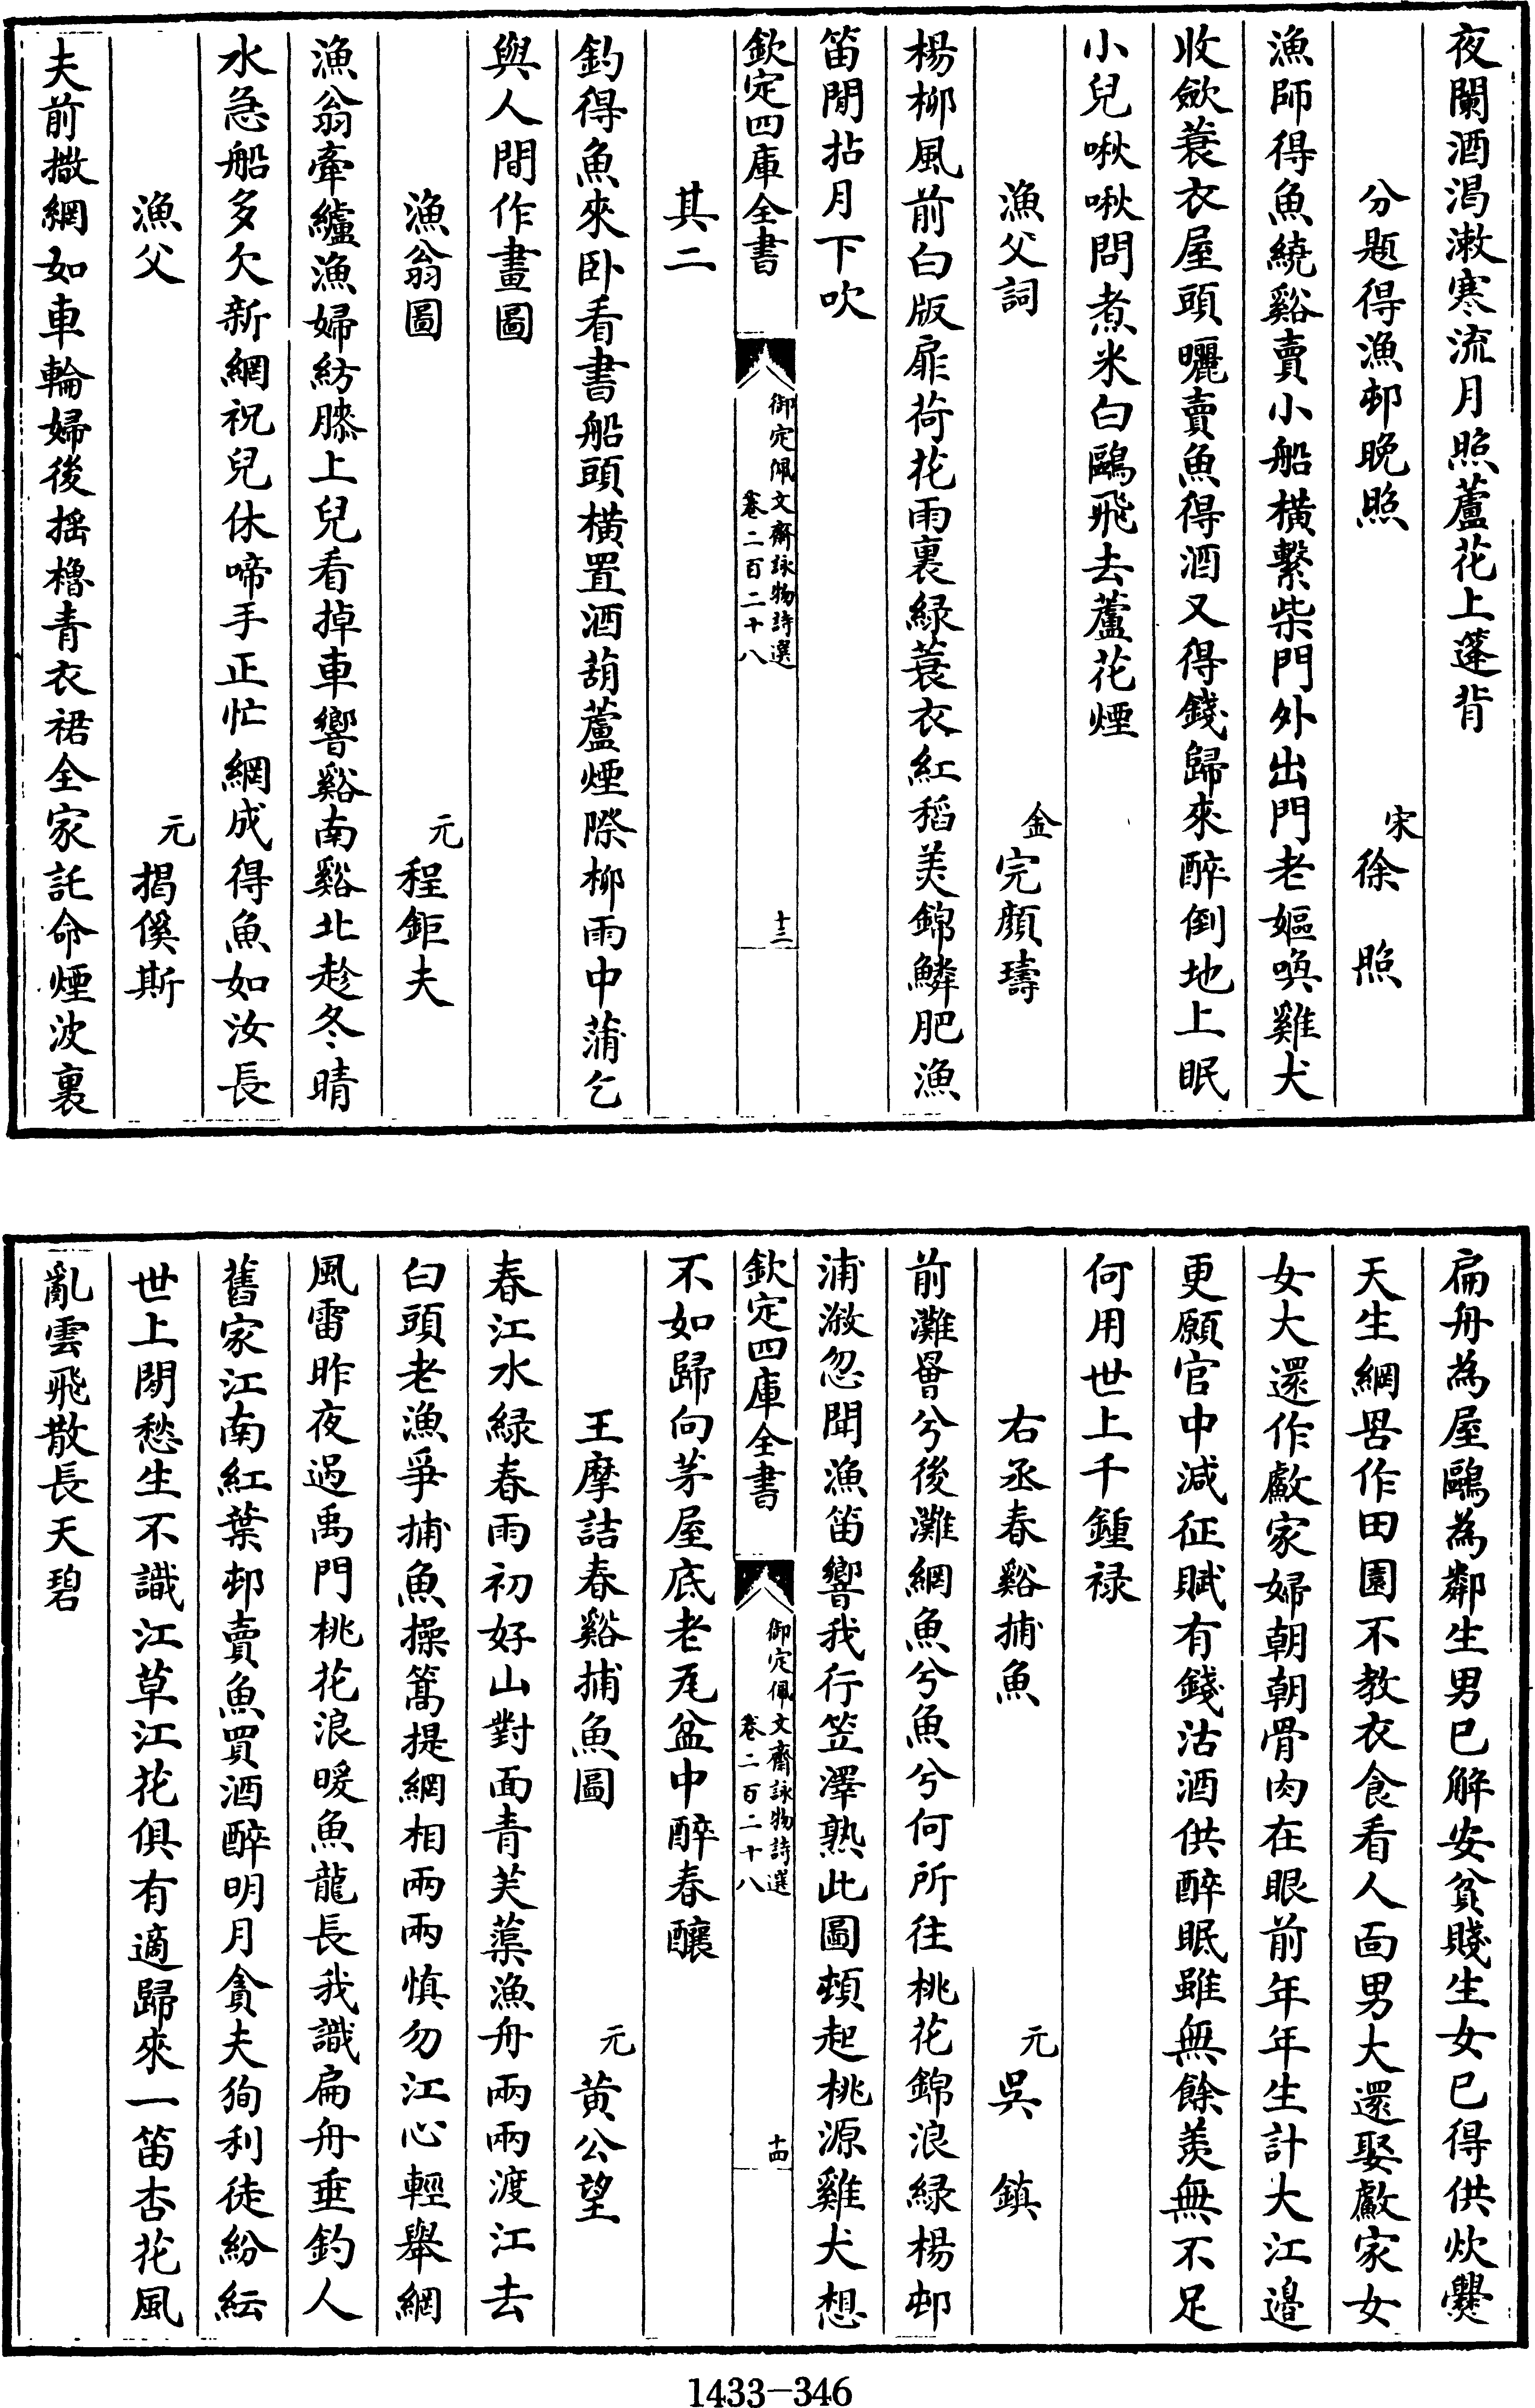 夜闌酒渴漱寒流月照蘆花上篷背
分題得漁邨晚照
宋徐照
漁師得魚繞谿賣小船橫繫柴門外出門老嫗喚雞犬
收歛蓑衣屋頭曬賣魚得酒又得錢歸來醉倒地上眠
小兒啾啾問煮米白鷗飛去蘆花煙
漁父詞
金完顏璹
楊柳風前白版扉荷花雨裏緑蓑衣紅稻美錦鱗肥漁
笛閒拈月下吹
欽定四庫全書
御定佩文齋詠物詩選
卷二百二十八
十三
其二
釣得魚來卧看書船頭橫置酒葫蘆煙際柳雨中蒲乞
與人間作畫圖
漁翁圖
元程鉅夫
漁翁牽纑漁婦紡膝上兒看掉車響谿南谿北趁冬晴
水急船多欠新網祝兒休啼手正忙網成得魚如汝長
漁父
元揭傒斯
夫前撒網如車輪婦後搖櫓青衣裙全家託命煙波裏
扁舟為屋鷗為鄰生男已解安貧賤生女已得供炊爨
天生網罟作田園不教衣食看人面男大還娶䱷家女
女大還作䱷家婦朝朝骨肉在眼前年年生計大江邊
更願官中減征賦有錢沽酒供醉眠雖無餘羨無不足
何用世上千鍾禄
右丞春谿捕魚
元吳鎮
前灘罾兮後灘網魚兮魚兮何所往桃花錦浪緑楊邨
浦漵忽聞漁笛響我行笠澤熟此圖頓起桃源雞犬想
欽定四庫全書
御定佩文齋詠物詩選
卷二百二十八
十四
不如歸向茅屋底老瓦盆中醉春釀
王摩詰春谿捕魚圖
元黃公望
春江水緑春雨初好山對面青芙蕖漁舟兩兩渡江去
白頭老漁爭捕魚操篙提網相兩兩慎勿江心輕舉網
風雷昨夜過禹門桃花浪暖魚龍長我識扁舟垂釣人
舊家江南紅葉邨賣魚買酒醉明月貪夫狥利徒紛紜
世上閒愁生不識江草江花俱有適歸來一笛杏花風
亂雲飛散長天碧
1433-346